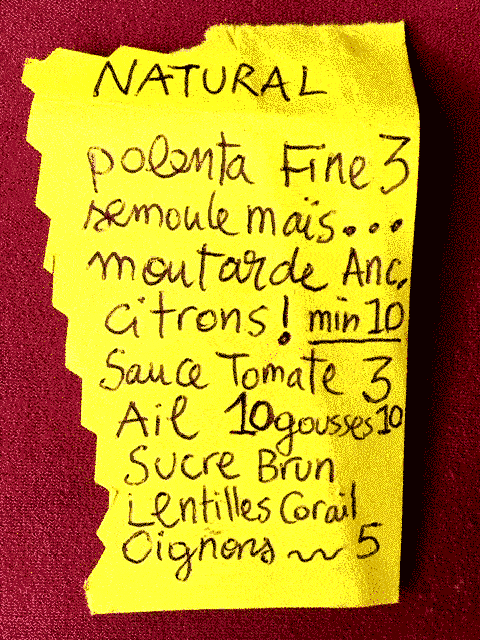 NATURAL
polenta Fine 3
semoule maïs...
moutarde Anc.
citrons! min 10
Sauce Tomate 3
Ail 10 gousses 10
Sucre Brun
Lentilles Corail
Oignons ~ 5